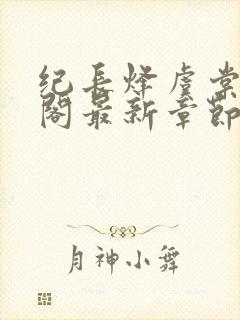 纪长烽虞棠
阁最新章节
月神小舞